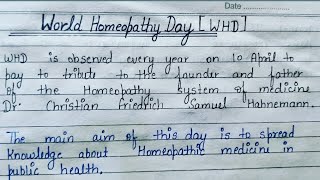 Date
World Homeopathy Day [WHD]
WHD is observed every year on 10 April to
pay to tribute to the founder and father
of the Homeopathy system of medicine
Dr. Christian Friedrich Samuel Hahnemann.
The main aim of this day is to spread
Knowledge about Homeopathic medicine in
public health.